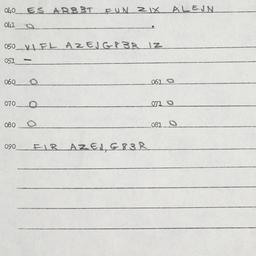 040 ES ARBET FUN ZIX ALEJN
041 O
050 VIFL AZEJGER IZ
051 –
060 O 061 O
070 O 071 O
080 O 081 O
090 FIR AZEJGER